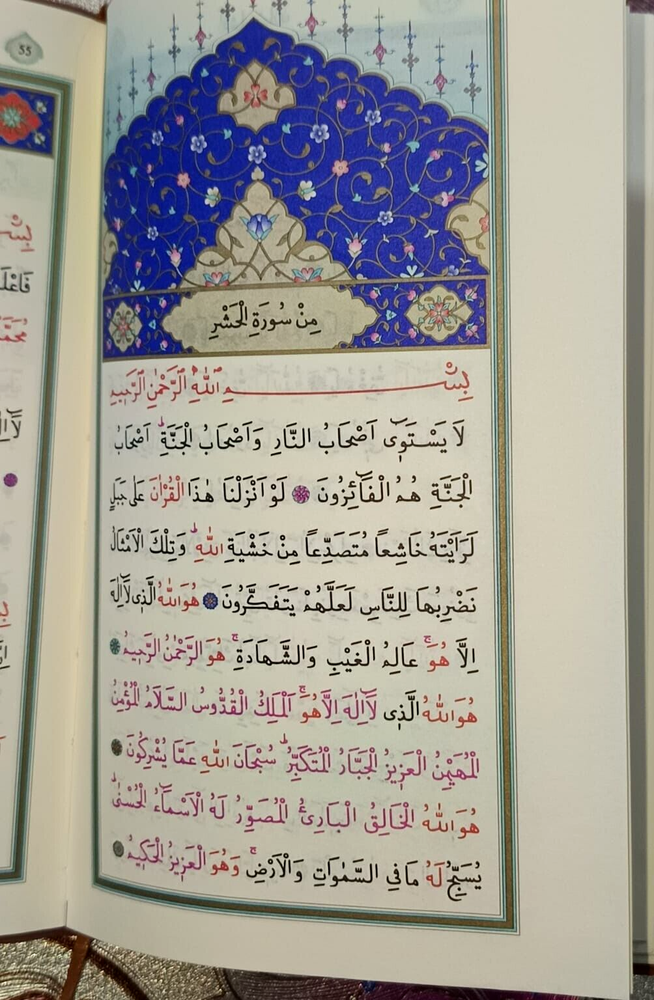 مِنْ سُورَةِ الْحَشْرِ
بِسْمِ اللّٰهِ الرَّحْمٰنِ الرَّحِيمِ
لَا يَسْتَوٓى اَصْحَابُ النَّارِ وَاَصْحَابُ الْجَنَّةِۜ اَصْحَابُ
الْجَنَّةِ هُمُ الْفَٓائِزُونَ ۞ لَوْ اَنْزَلْنَا هٰذَا الْقُرْاٰنَ عَلٰى جَبَلٍ
لَرَاَيْتَهُ خَاشِعًا مُتَصَدِّعًا مِنْ خَشْيَةِ اللّٰهِۜ وَتِلْكَ الْاَمْثَالُ
نَضْرِبُهَا لِلنَّاسِ لَعَلَّهُمْ يَتَفَكَّرُونَ ۞ هُوَ اللّٰهُ الَّذٖى لَٓا اِلٰهَ
اِلَّا هُوَۚ عَالِمُ الْغَيْبِ وَالشَّهَادَةِۚ هُوَ الرَّحْمٰنُ الرَّحٖيمُ ۞
هُوَ اللّٰهُ الَّذٖى لَٓا اِلٰهَ اِلَّا هُوَۚ اَلْمَلِكُ الْقُدُّوسُ السَّلَامُ الْمُؤْمِنُ
الْمُهَيْمِنُ الْعَزٖيزُ الْجَبَّارُ الْمُتَكَبِّرُۜ سُبْحَانَ اللّٰهِ عَمَّا يُشْرِكُونَ ۞
هُوَ اللّٰهُ الْخَالِقُ الْبَارِئُ الْمُصَوِّرُ لَهُ الْاَسْمَٓاءُ الْحُسْنٰىۜ
يُسَبِّحُ لَهُ مَا فِى السَّمٰوَاتِ وَالْاَرْضِۚ وَهُوَ الْعَزٖيزُ الْحَكٖيمُ ۞